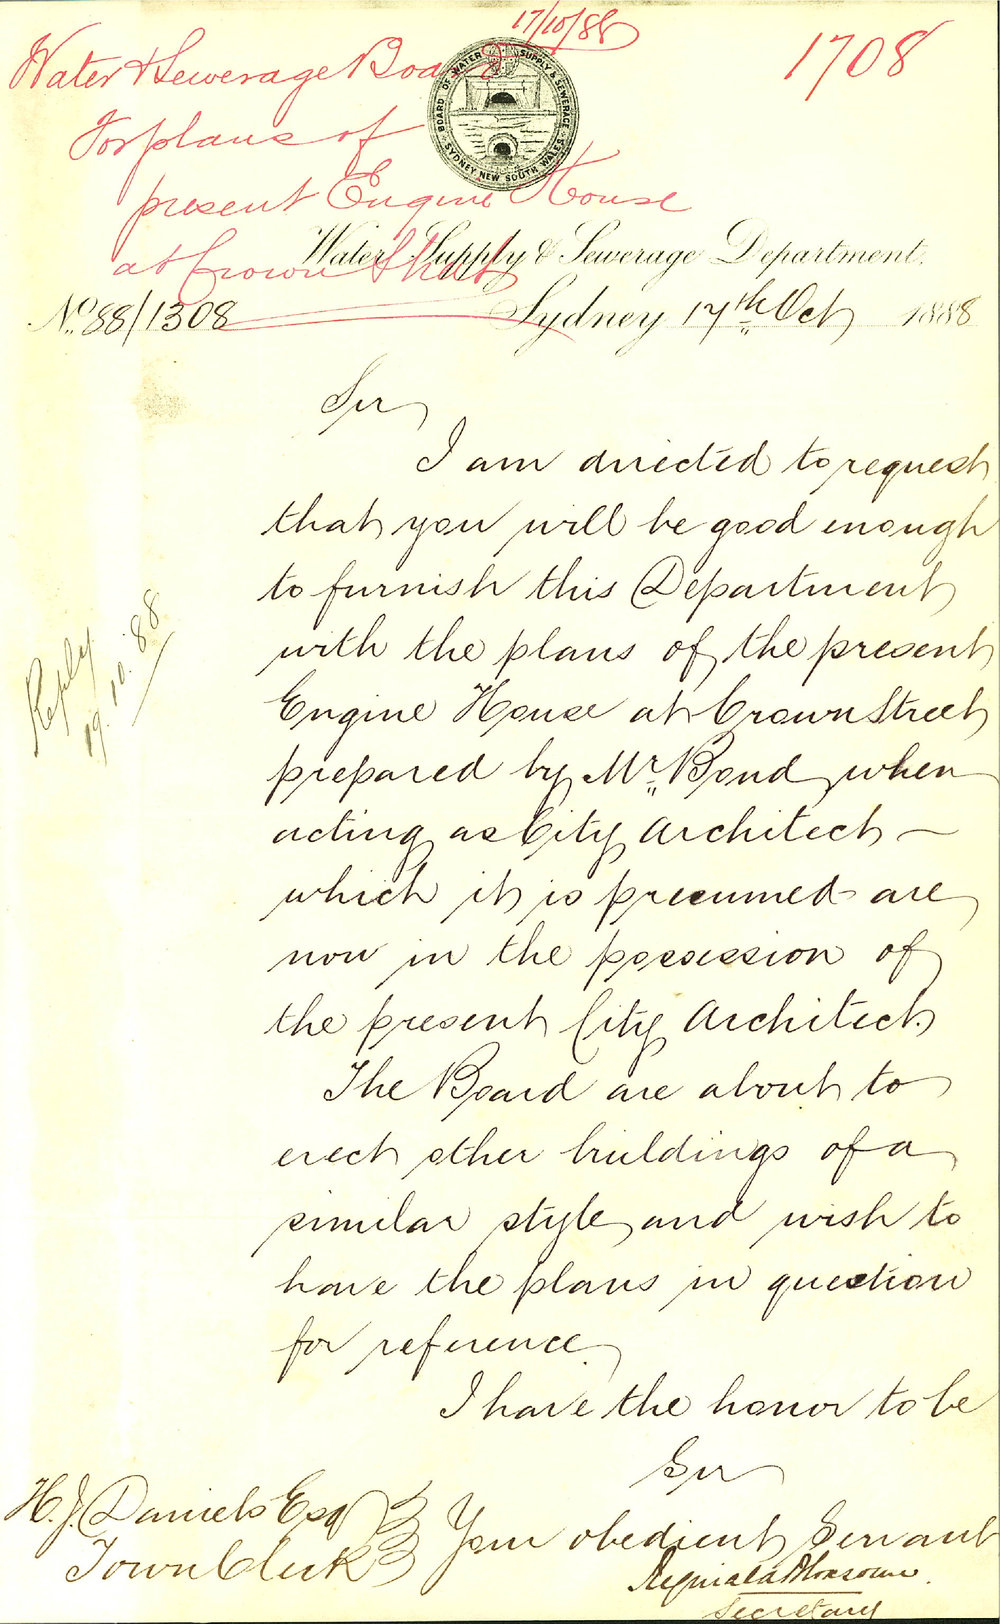 17/10/88
1708
Water & Sewerage Board
For plans of
present Engine House
at Crown Street
BOARD OF WATER SUPPLY & SEWERAGE
SYDNEY NEW SOUTH WALES
Water Supply & Sewerage Department.
No. 88/1308 Sydney 17th Oct 1888
Sir
I am directed to request
that you will be good enough
to furnish this Department
with the plans of the present
Engine House at Crown Street
prepared by Mr. Bond, when
acting as City Architect –
which it is presumed are
now in the possession of
the present City Architect.
The Board are about to
erect other buildings of a
similar style, and wish to
have the plans in question
for reference.
I have the honor to be
Sir
Your obedient Servant
Secretary
H. J. Daniels Esq
Town Clerk
Reply
19.10.88